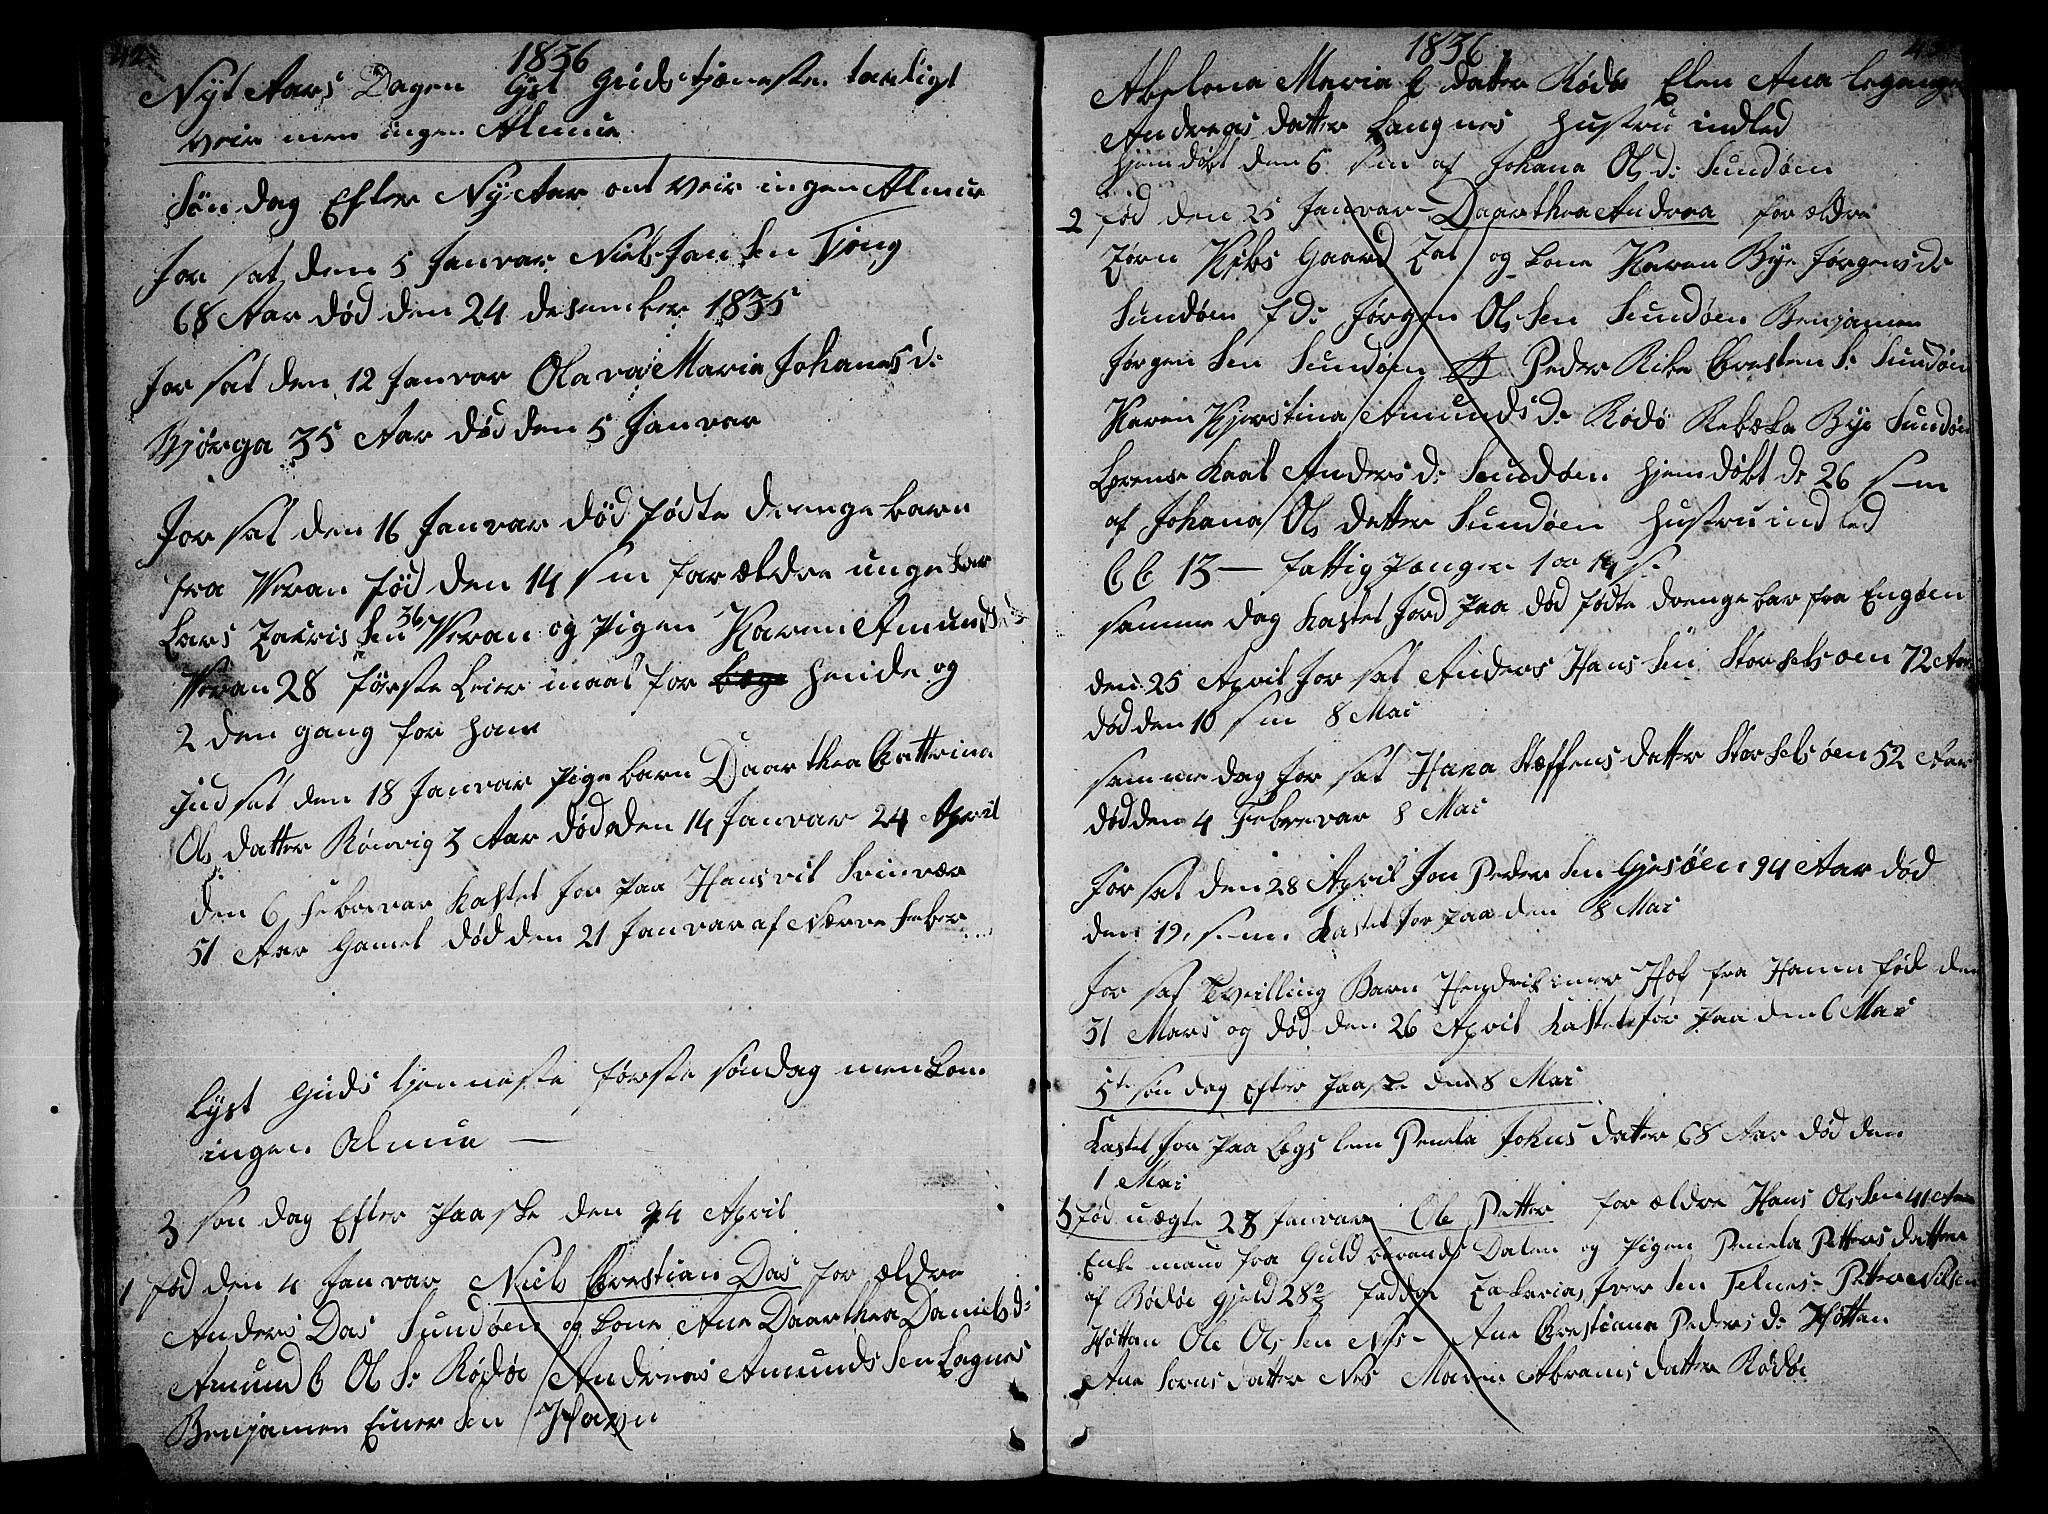 42
1836
Nyt Aars Dagen Lyst Guds tjæneste taaligt
veir men ingen Almue
Søn dag Efter Ny Aar ont veir ingen Almue
for sat den 5 Janvar Niels Jansen Tjong
68 Aar død den 24 desember 1835
for sat den 12 Janvar Olava Maria Johanes d:
Bjørga 35 Aar død den 5 Janvar
for sat den 16 Janvar død fødte drenge barn
fra Væran fød den 14 s m forældre unge kar
Lars Zakris Sen 36 Væran og Pigen Karen Amunds d:
Væran 28 første Leier maal for hende og
2 den gang for ham
Jnd sat den 18 Janvar Pige barn Daarthea Cattrina
Ols datter Rønvig 3 Aar død den 14 Janvar 24 April
den 6 Febrevar kastet Jor paa Hans vil Svinvær
51 Aar Gamel død den 21 Janvar af Nærve Feber
Lyst Guds tjenneste første søndag men kom
ingen Almue
3 søn dag Efter Paaske den 24 April
1 fød den 4 Janvar Niels Crestian Das for ældre
Anders Das Sundøen og kone Ane Daarthea Daniels d:
Amund C Ols S: Rødøe Andreas Amunds Sen Lagnes
Benjamen Einer Sen Havn
1836
Abelona Maria C datter Rødø Elen Ana
Andreas datter Langnes Hustru indled
hjem døbt den 6 s m af Johana Ols d: Sundøen
2 fød den 25 Janvar Daarthea Andrea for ældre
Jørn Kibs Gaard Zal og kone Karen Bye Jørgens d:
Sundøen F d: Jørgen Olsen Sundøen Benjamen
Jørgen Sen Sundøen Peder Rike Cresten S: Sundøen
Karen Kjerstina Amunds d: Rødø Rebeka Bye Sundøen
Lorense Kaal Anders d: Sundøen hjem døbt d: 26 s m
af Johana Ols datter Sundøen Hustru ind led
C C 13 — fattig Penger 1 or 14 s.
samme dag kastet Jord paa død fødte drenge bar fra Engøen
den 25 April for sat Anders Hans Sen Storselsøen 72 Aar
død den 10 s m 8 Mai
samme dag for sat Hana Stæffens datter Storselsøen 52 Aar
død den 4 Febrevar 8 Mai
for sat den 28 April Jon Peder Sen Gjesøen 94 Aar død
den 19, s m. Kastet Jor paa den 8 Mai
for sat Tvilling Barn Hendrik imer Hof fra Hamn fød den
31 Mars og død den 26 April kastet Jor paa den 8 Mai
5te søn dag Efter Paaske den 8 Mai
Kastet Jor paa Legs lem Penela Johns datter 68 Aar død den
1 Mai
3 fød uægte 23 Janvar Ole Petter for ældre Hans Olsen 41 Aar
Enke mand fra Guld brands Dalen og Pigen Penela Petters datter
af Bodøe Gjeld 28 Fadder Zakarias Iver Sen Selnes Petter Nilsen
Høttan Ole Olsen Nes Ane Crestiane Peders d: Høttan
Ane Sørens datter Nes Maren Abrams datter Rødøe